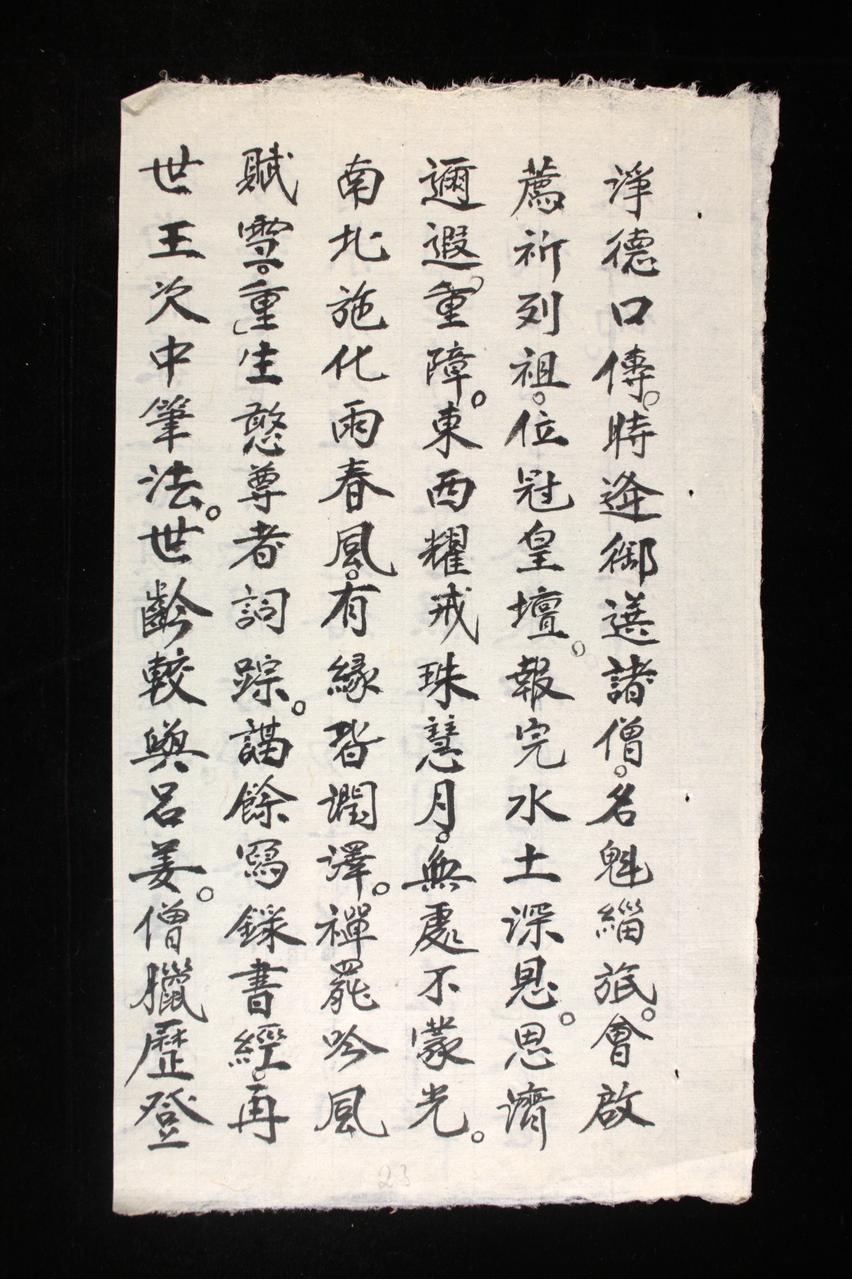 淨德口傳。時逢御選諸僧。名魁緇旅。會啟
薦祈列祖。位冠皇壇。報完水土深恩。恩濟
邇遐。重障。東西耀戒珠慧月。無處不蒙光。
南北施化雨春風。有緣皆潤澤。禪罷吟風
賦雪。重生憨尊者詞踪。講餘寫錄書經。再
世王次中筆法。世齡較與呂姜。僧臘歷登
23